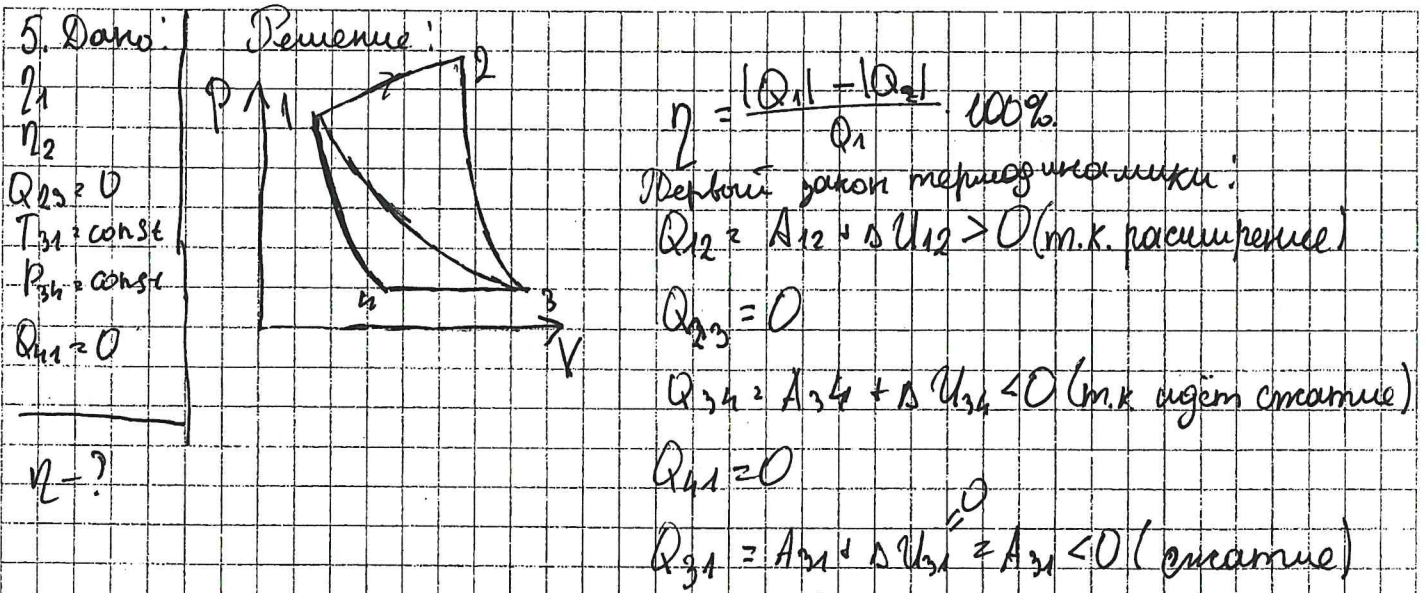 5. Дано:
η1
η2
Q23 = 0
T31 = const
P34 = const
Q41 = 0
η - ?
Решение:
P
1
2
4
3
V
η = (|Q1| - |Q2|) / Q1 · 100%
Первый закон термодинамики:
Q12 = A12 + ΔU12 > 0 (т.к. расширение)
Q23 = 0
Q34 = A34 + ΔU34 < 0 (т.к идёт сжатие)
Q41 = 0
= 0
Q31 = A31 + ΔU31 = A31 < 0 (сжатие)